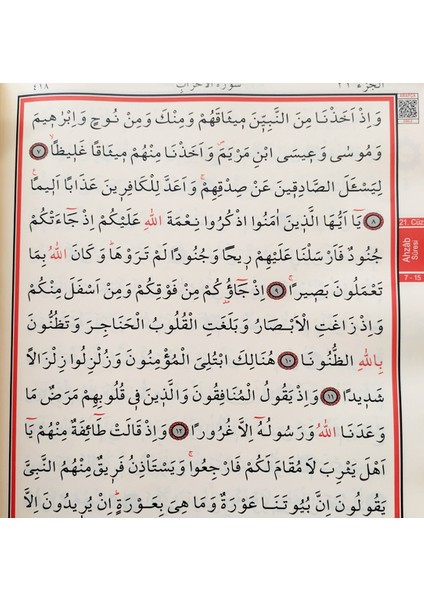 ٤١٨ سورة الاحزاب الجزء ٢١
وَاِذْ اَخَذْنَا مِنَ النَّبِيّنَ مِيثَاقَهُمْ وَمِنْكَ وَمِنْ نُوحٍ وَاِبْرٰهِيمَ
وَمُوسٰى وَعِيسَى ابْنِ مَرْيَمَ وَاَخَذْنَا مِنْهُمْ مِيثَاقًا غَلِيظًا ٧
لِيَسْـَٔلَ الصَّادِقِينَ عَنْ صِدْقِهِمْ وَاَعَدَّ لِلْكَافِرِينَ عَذَابًا اَلِيمًا
٨ يَٓا اَيُّهَا الَّذِينَ اٰمَنُوا اذْكُرُوا نِعْمَةَ اللّٰهِ عَلَيْكُمْ اِذْ جَٓاءَتْكُمْ
جُنُودٌ فَاَرْسَلْنَا عَلَيْهِمْ رِيحًا وَجُنُودًا لَمْ تَرَوْهَا وَكَانَ اللّٰهُ بِمَا
تَعْمَلُونَ بَصِيرًا ٩ اِذْ جَٓاؤُ۫كُمْ مِنْ فَوْقِكُمْ وَمِنْ اَسْفَلَ مِنْكُمْ
وَاِذْ زَاغَتِ الْاَبْصَارُ وَبَلَغَتِ الْقُلُوبُ الْحَنَاجِرَ وَتَظُنُّونَ
بِاللّٰهِ الظُّنُونَا ١٠ هُنَالِكَ ابْتُلِيَ الْمُؤْمِنُونَ وَزُلْزِلُوا زِلْزَالًا
شَدِيدًا ١١ وَاِذْ يَقُولُ الْمُنَافِقُونَ وَالَّذِينَ فِي قُلُوبِهِمْ مَرَضٌ مَا
وَعَدَنَا اللّٰهُ وَرَسُولُهُٓ اِلَّا غُرُورًا ١٢ وَاِذْ قَالَتْ طَٓائِفَةٌ مِنْهُمْ يَٓا
اَهْلَ يَثْرِبَ لَا مُقَامَ لَكُمْ فَارْجِعُوا وَيَسْتَأْذِنُ فَرِيقٌ مِنْهُمُ النَّبِيَّ
يَقُولُونَ اِنَّ بُيُوتَنَا عَوْرَةٌ وَمَا هِيَ بِعَوْرَةٍ اِنْ يُرِيدُونَ اِلَّا
21. Cüz
Ahzâb
Sûresi
7 - 15